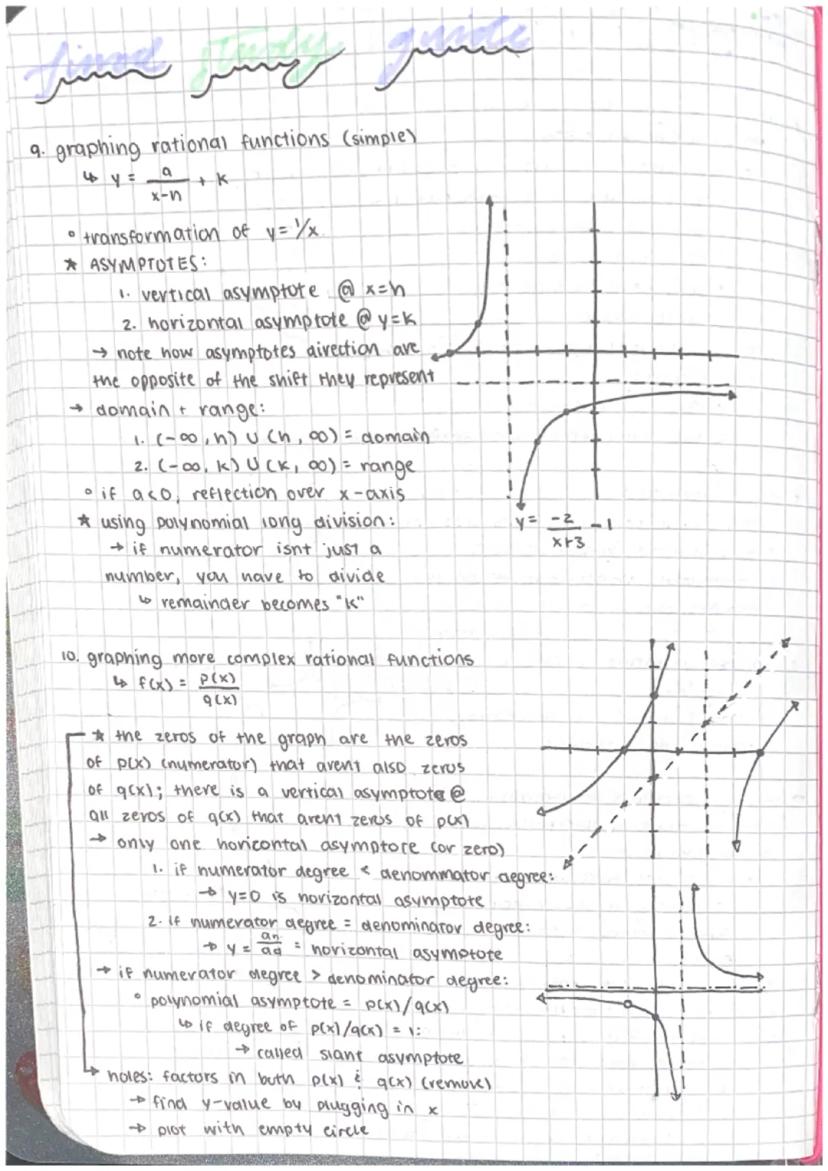 final study guide
9. graphing rational functions (simple)
↳ y = a/(x-h) + k
° transformation of y = 1/x
* ASYMPTOTES:
1. vertical asymptote @ x=h
2. horizontal asymptote @ y=k
→ note how asymptotes direction are
the opposite of the shift they represent
→ domain + range:
1. (-∞, h) ∪ (h, ∞) = domain
2. (-∞, k) ∪ (k, ∞) = range
° if a<0, reflection over x-axis
* using polynomial long division:
→ if numerator isnt just a
number, you have to divide
↳ remainder becomes "k"
y = -2/(x+3) - 1
10. graphing more complex rational functions
↳ f(x) = p(x)/q(x)
* the zeros of the graph are the zeros
of p(x) (numerator) that arent also zeros
of q(x); there is a vertical asymptote @
all zeros of q(x) that arent zeros of p(x)
→ only one horizontal asymptote (or zero)
1. if numerator degree < denominator degree:
→ y=0 is horizontal asymptote
2. if numerator degree = denominator degree:
→ y = an/ad = horizontal asymptote
→ if numerator degree > denominator degree:
° polynomial asymptote = p(x)/q(x)
↳ if degree of p(x)/q(x) = 1:
→ called slant asymptote
↳ holes: factors in both p(x) & q(x) (remove)
→ find y-value by plugging in x
→ plot with empty circle